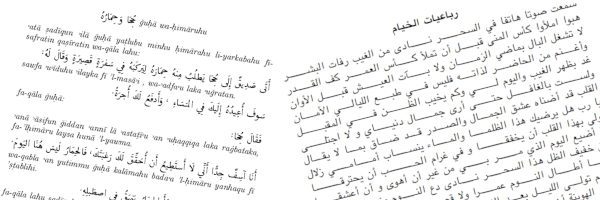 جُحَا وَحِمَارُهُ
ǧuḥā wa-ḥimāruhu
ʾatā ṣadīqun ʾilā ǧuḥā yaṭlubu minhu ḥimārahu li-yarkabahu fī
safratin qaṣīratin wa-qāla lahu:
أَتَى صَدِيقٌ إِلَى جُحَا يَطْلُبُ مِنْهُ حِمَارَهُ لِيَرْكَبَهُ فِي سَفْرَةٍ قَصِيرَةٍ وَقَالَ لَهُ:
sawfa ʾuʿīduhu ʾilayka fī ʾl-masāʾi , wa-ʾadfaʿu laka ʾuǧratan.
سَوفَ أُعِيدُهُ إِلَيكَ فِي المَسَاءِ ، وَأَدفَعُ لَكَ أُجرَةً.
fa-qāla ǧuḥā:
فَقَالَ جُحَا:
ʾanā ʾāsifun ǧiddan ʾannī lā ʾastaṭīʿu ʾan ʾuḥaqqiqa laka raġbataka,
fa-ʾl-ḥimāru laysa hunā ʾl-yawma.
أَنَا آسِفٌ جِدًّا أَنِّي لَا أَستَطِيعُ أَن أُحَقِّقَ لَكَ رَغبَتَكَ، فَالحِمَارُ لَيسَ هُنَا اليَومَ.
wa-qabla ʾan yutimma ǧuḥā kalāmahu badaʾa ʾl-ḥimāru yanhaqu fī
ʾṣṭablihi.
رباعيات الخيام
سمعت صوتا هاتفا في السحر نادى من الغيب رفات البشر
هبوا املأوا كأس المنى قبل أن تملأ كأس العمر كف القدر
لا تشغل البال بماضي الزمان ولا بآت العيش قبل الأوان
وأغنم من الحاضر لذاته فليس في طبع الليالي الأمان
غد بظهر الغيب واليوم لي وكم يخيب الظن في المقبل
ولست بالغافل حتى أرى جمال دنياي ولا أجتلي
القلب قد أضناه عشق الجمال والصدر قد ضاق بما لا يقال
يا رب هل يرضيك هذا الظما والماء ينساب أمامي زلال
أولى بهذا القلب أن يخفقا وفي غرام الحب أن يحترقا
أضيع اليوم الذي مر بي من غير أن أهوى وأن أعشقا